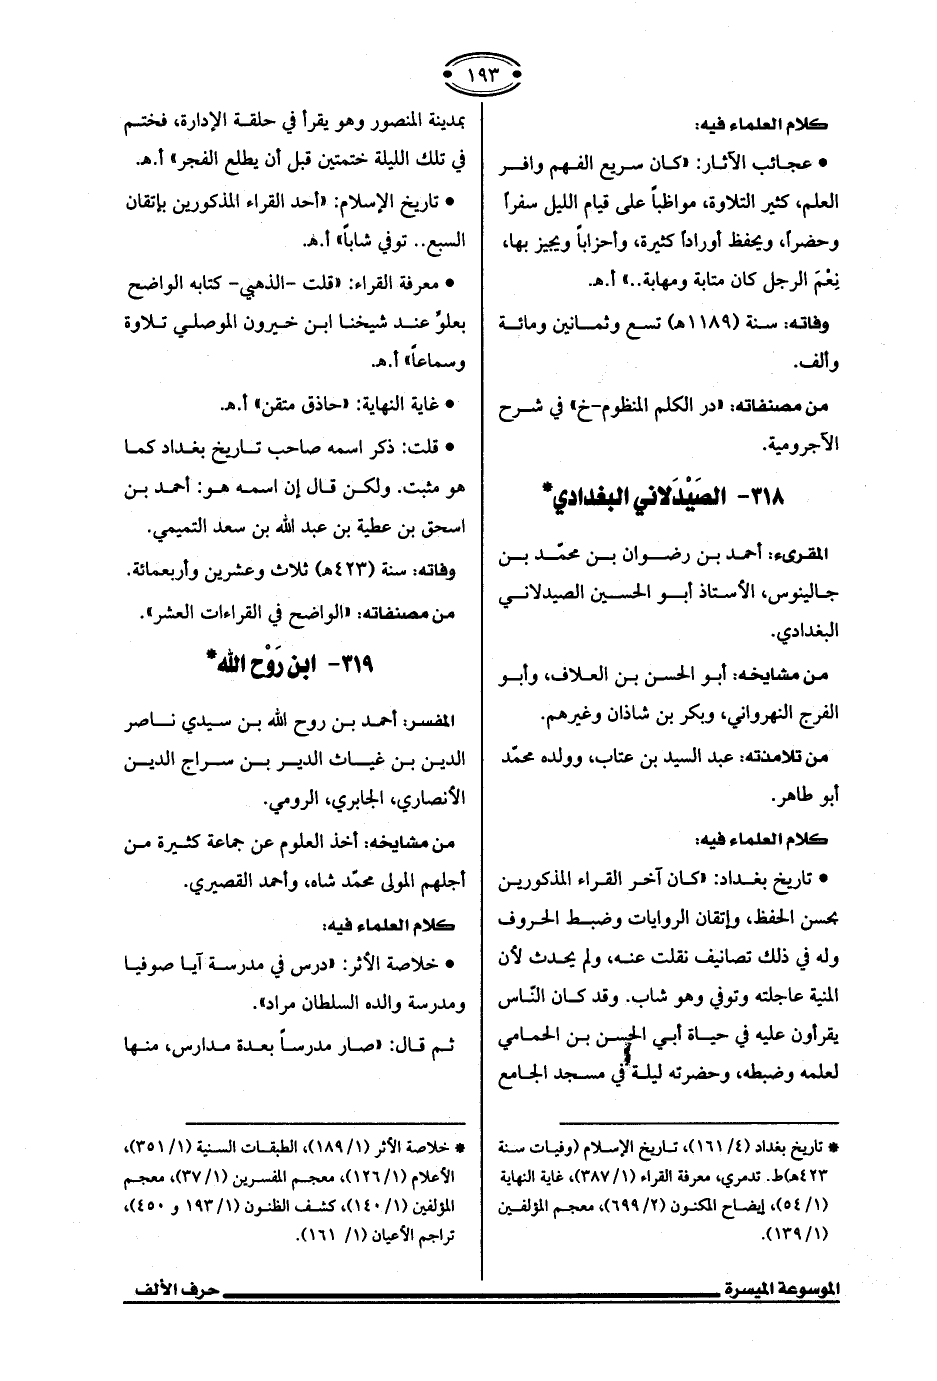 ١٩٣
كلام العلماء فيه:
• عجائب الآثار: «كان سريع الفهم وافر
العلم، كثير التلاوة، مواظباً على قيام الليل سفراً
وحضراً، ويحفظ أوراداً كثيرة، وأحزاباً ويجيز بها،
نِعْمَ الرجل كان متابة ومهابة..» أ.هـ.
وفاته: سنة (١١٨٩هـ) تسع وثمانين ومائة
وألف.
من مصنفاته: «در الكلم المنظوم-خ» في شرح
الآجرومية.
٣١٨- الصَيْدَلاني البغدادي*
المقرىء: أحمد بن رضوان بن محمّد بن
جالينوس، الأستاذ أبو الحسين الصيدلاني
البغدادي.
من مشايخه: أبو الحسن بن العلاف، وأبو
الفرج النهرواني، وبكر بن شاذان وغيرهم.
من تلامذته: عبد السيد بن عتاب، وولده محمّد
أبو طاهر.
كلام العلماء فيه:
• تاريخ بغداد: «كان آخر القراء المذكورين
بحسن الحفظ، وإتقان الروايات وضبط الحروف
وله في ذلك تصانيف نقلت عنه، ولم يحدث لأن
المنية عاجلته وتوفي وهو شاب. وقد كان النّاس
يقرأون عليه في حياة أبي الحسن بن الحمامي
لعلمه وضبطه، وحضرته ليلة في مسجد الجامع
* تاريخ بغداد (٤/ ١٦١)، تاريخ الإسلام (وفيات سنة
٤٢٣هـ)ط. تدمري، معرفة القراء (١/ ٣٨٧)، غاية النهاية
(١/ ٥٤)، إيضاح المكنون (٢/ ٦٩٩)، معجم المؤلفين
(١/ ١٣٩).
بمدينة المنصور وهو يقرأ في حلقة الإدارة، فختم
في تلك الليلة ختمتين قبل أن يطلع الفجر» أ.هـ.
• تاريخ الإسلام: «أحد القراء المذكورين بإتقان
السبع.. توفي شاباً» أ.هـ.
• معرفة القراء: «قلت -الذهبي- كتابه الواضح
بعلوٍ عند شيخنا ابن خيرون الموصلي تلاوة
وسماعاً» أ.هـ.
• غاية النهاية: «حاذق متقن» أ.هـ.
• قلت: ذكر اسمه صاحب تاريخ بغداد كما
هو مثبت. ولكن قال إن اسمه هو: أحمد بن
اسحق بن عطية بن عبد الله بن سعد التميمي.
وفاته: سنة (٤٢٣هـ) ثلاث وعشرين وأربعمائة.
من مصنفاته: «الواضح في القراءات العشر».
٣١٩- ابن رَوْح الله*
المفسر: أحمد بن روح الله بن سيدي ناصر
الدين بن غياث الدير بن سراج الدين
الأنصاري، الجابري، الرومي.
من مشايخه: أخذ العلوم عن جماعة كثيرة من
أجلهم المولى محمّد شاه، وأحمد القصيري.
كلام العلماء فيه:
• خلاصة الأثر: «درس في مدرسة آيا صوفيا
ومدرسة والده السلطان مراد».
ثم قال: «صار مدرساً بعدة مدارس، منها
* خلاصة الأثر (١/ ١٨٩)، الطبقات السنية (١/ ٣٥١)،
الأعلام (١/ ١٢٦)، معجم المفسرين (١/ ٣٧)، معجم
المؤلفين (١/ ١٤٠)، كشف الظنون (١/ ١٩٣ و ٤٥٠)،
تراجم الأعيان (١/ ١٦١).
الموسوعة الميسرة
حرف الألف